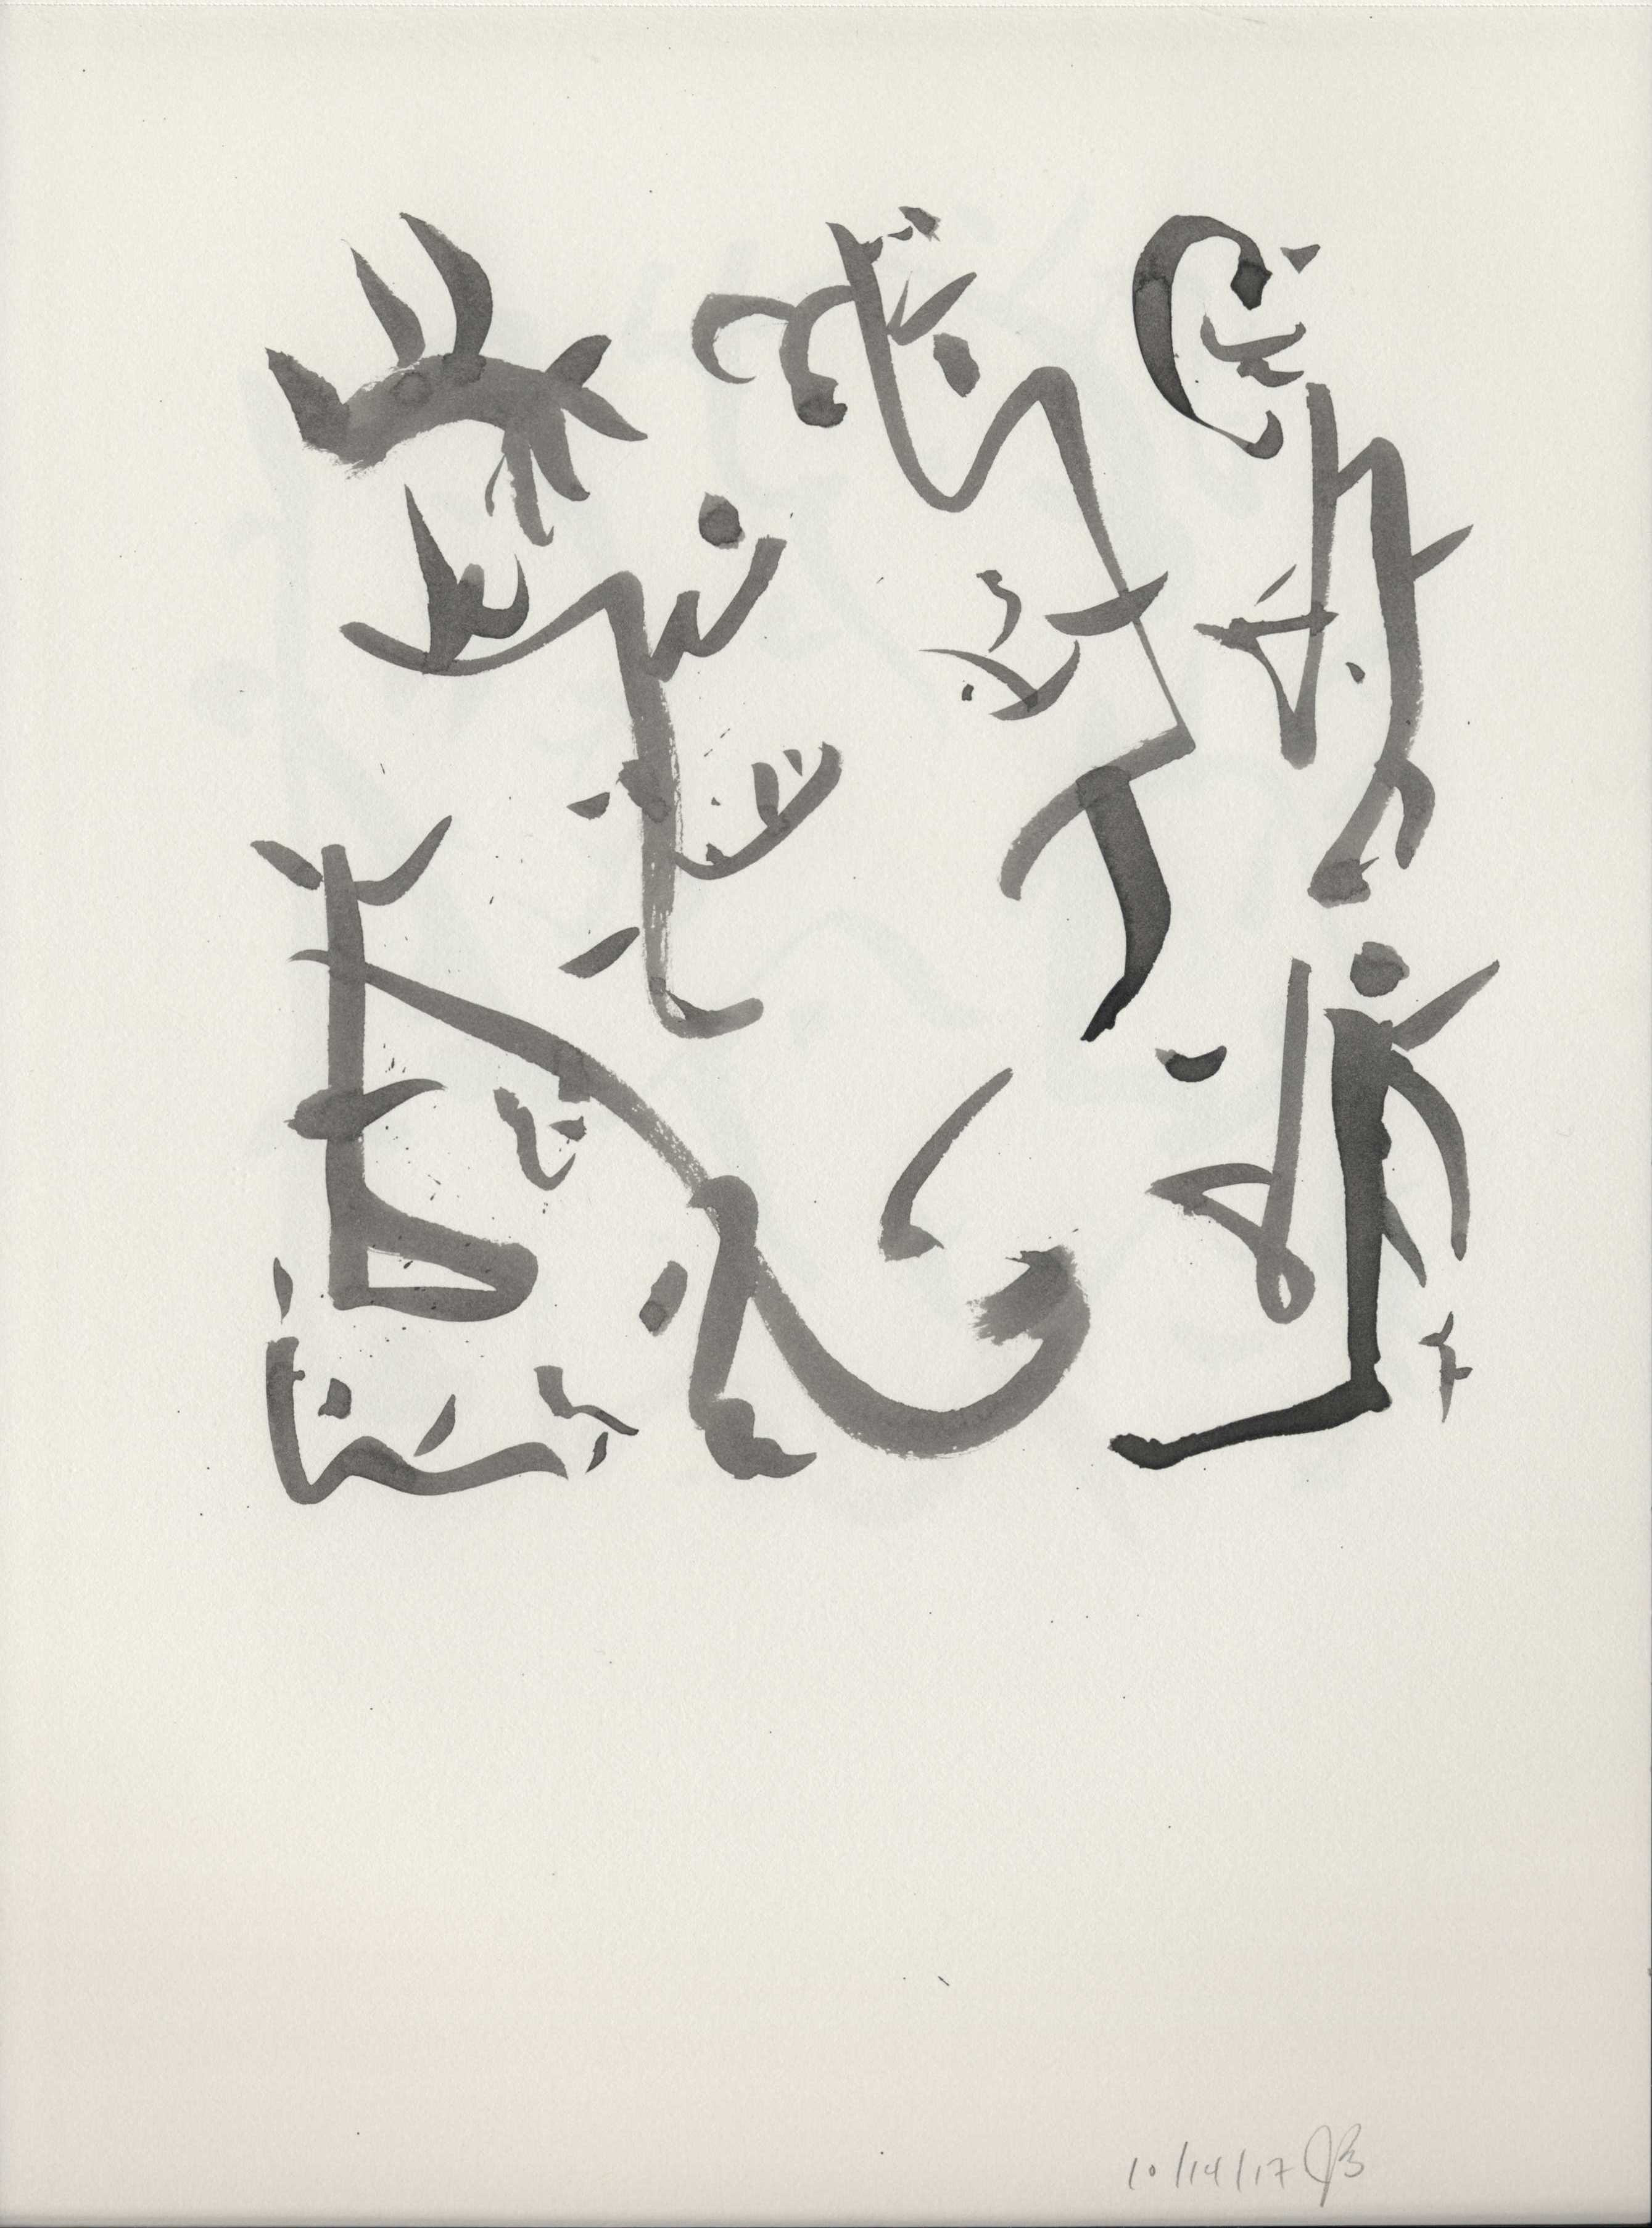 10/14/17 JB